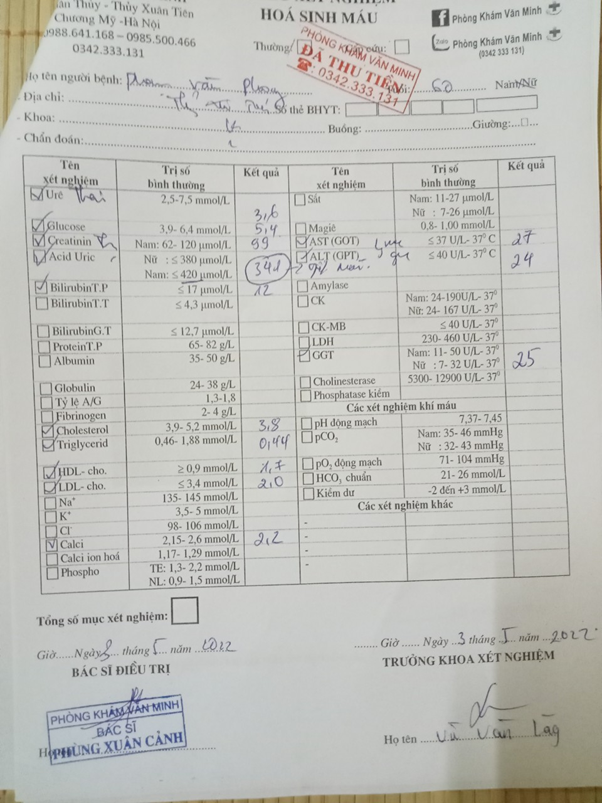 Thủy - Thủy Xuân Tiên
Chương Mỹ -Hà Nội
0988.641.168 – 0985.500.466
0342.333.131
HOÁ SINH MÁU
Phòng Khám Văn Minh
Phòng Khám Văn Minh
(0342 333 131)
Thường: cứu:
PHÒNG KHÁM VĂN MINH
ĐÃ THU TIỀN
☎: 0342.333.131
Họ tên người bệnh: Văn 60 Nam/Nữ
- Địa chỉ: Số thẻ BHYT:
- Khoa: Buồng: Giường:
- Chẩn đoán:
Tên xét nghiệm Trị số bình thường Kết quả Tên xét nghiệm Trị số bình thường Kết quả
Urê 2,5-7,5 mmol/L 3,6 Sắt Nam: 11-27 µmol/L
Nữ : 7-26 µmol/L
Glucose 3,9- 6,4 mmol/L 5,4 Magiê 0,8- 1,00 mmol/L
Creatinin Nam: 62- 120 µmol/L 99 AST (GOT) ≤ 37 U/L- 37⁰ C 27
Acid Uric Nữ : ≤ 380 µmol/L ALT (GPT) ≤ 40 U/L- 37⁰ C 24
Nam: ≤ 420 µmol/L 341
BilirubinT.P ≤ 17 µmol/L 12 Amylase
BilirubinT.T ≤ 4,3 µmol/L CK Nam: 24-190U/L- 37⁰
Nữ: 24- 167 U/L- 37⁰
BilirubinG.T ≤ 12,7 µmol/L CK-MB ≤ 40 U/L- 37⁰
ProteinT.P 65- 82 g/L LDH 230- 460 U/L- 37⁰
Albumin 35- 50 g/L GGT Nam: 11- 50 U/L- 37⁰ 25
Nữ : 7- 32 U/L- 37⁰
Globulin 24- 38 g/L Cholinesterase 5300- 12900 U/L- 37⁰
Tỷ lệ A/G 1,3-1,8 Phosphatase kiềm
Fibrinogen 2- 4 g/L Các xét nghiệm khí máu
Cholesterol 3,9- 5,2 mmol/L 3,8 pH động mạch 7,37- 7,45
Triglycerid 0,46- 1,88 mmol/L 0,44 pCO₂ Nam: 35- 46 mmHg
Nữ : 32- 43 mmHg
HDL- cho. ≥ 0,9 mmol/L 1,7 pO₂ động mạch 71- 104 mmHg
LDL- cho. ≤ 3,4 mmol/L 2,0 HCO₃ chuẩn 21- 26 mmol/L
Na⁺ 135- 145 mmol/L Kiềm dư -2 đến +3 mmol/L
K⁺ 3,5- 5 mmol/L Các xét nghiệm khác
Cl⁻ 98- 106 mmol/L -
Calci 2,15- 2,6 mmol/L 2,2 -
Calci ion hoá 1,17- 1,29 mmol/L -
Phospho TE: 1,3- 2,2 mmol/L -
NL: 0,9- 1,5 mmol/L
Tổng số mục xét nghiệm:
Giờ......Ngày 3 tháng 5 năm 2022
BÁC SĨ ĐIỀU TRỊ
........ Giờ ...... Ngày 3 tháng 5 năm 2022
TRƯỞNG KHOA XÉT NGHIỆM
PHÒNG KHÁM VĂN MINH
BÁC SĨ
PHÙNG XUÂN CẢNH
Họ tên Văn